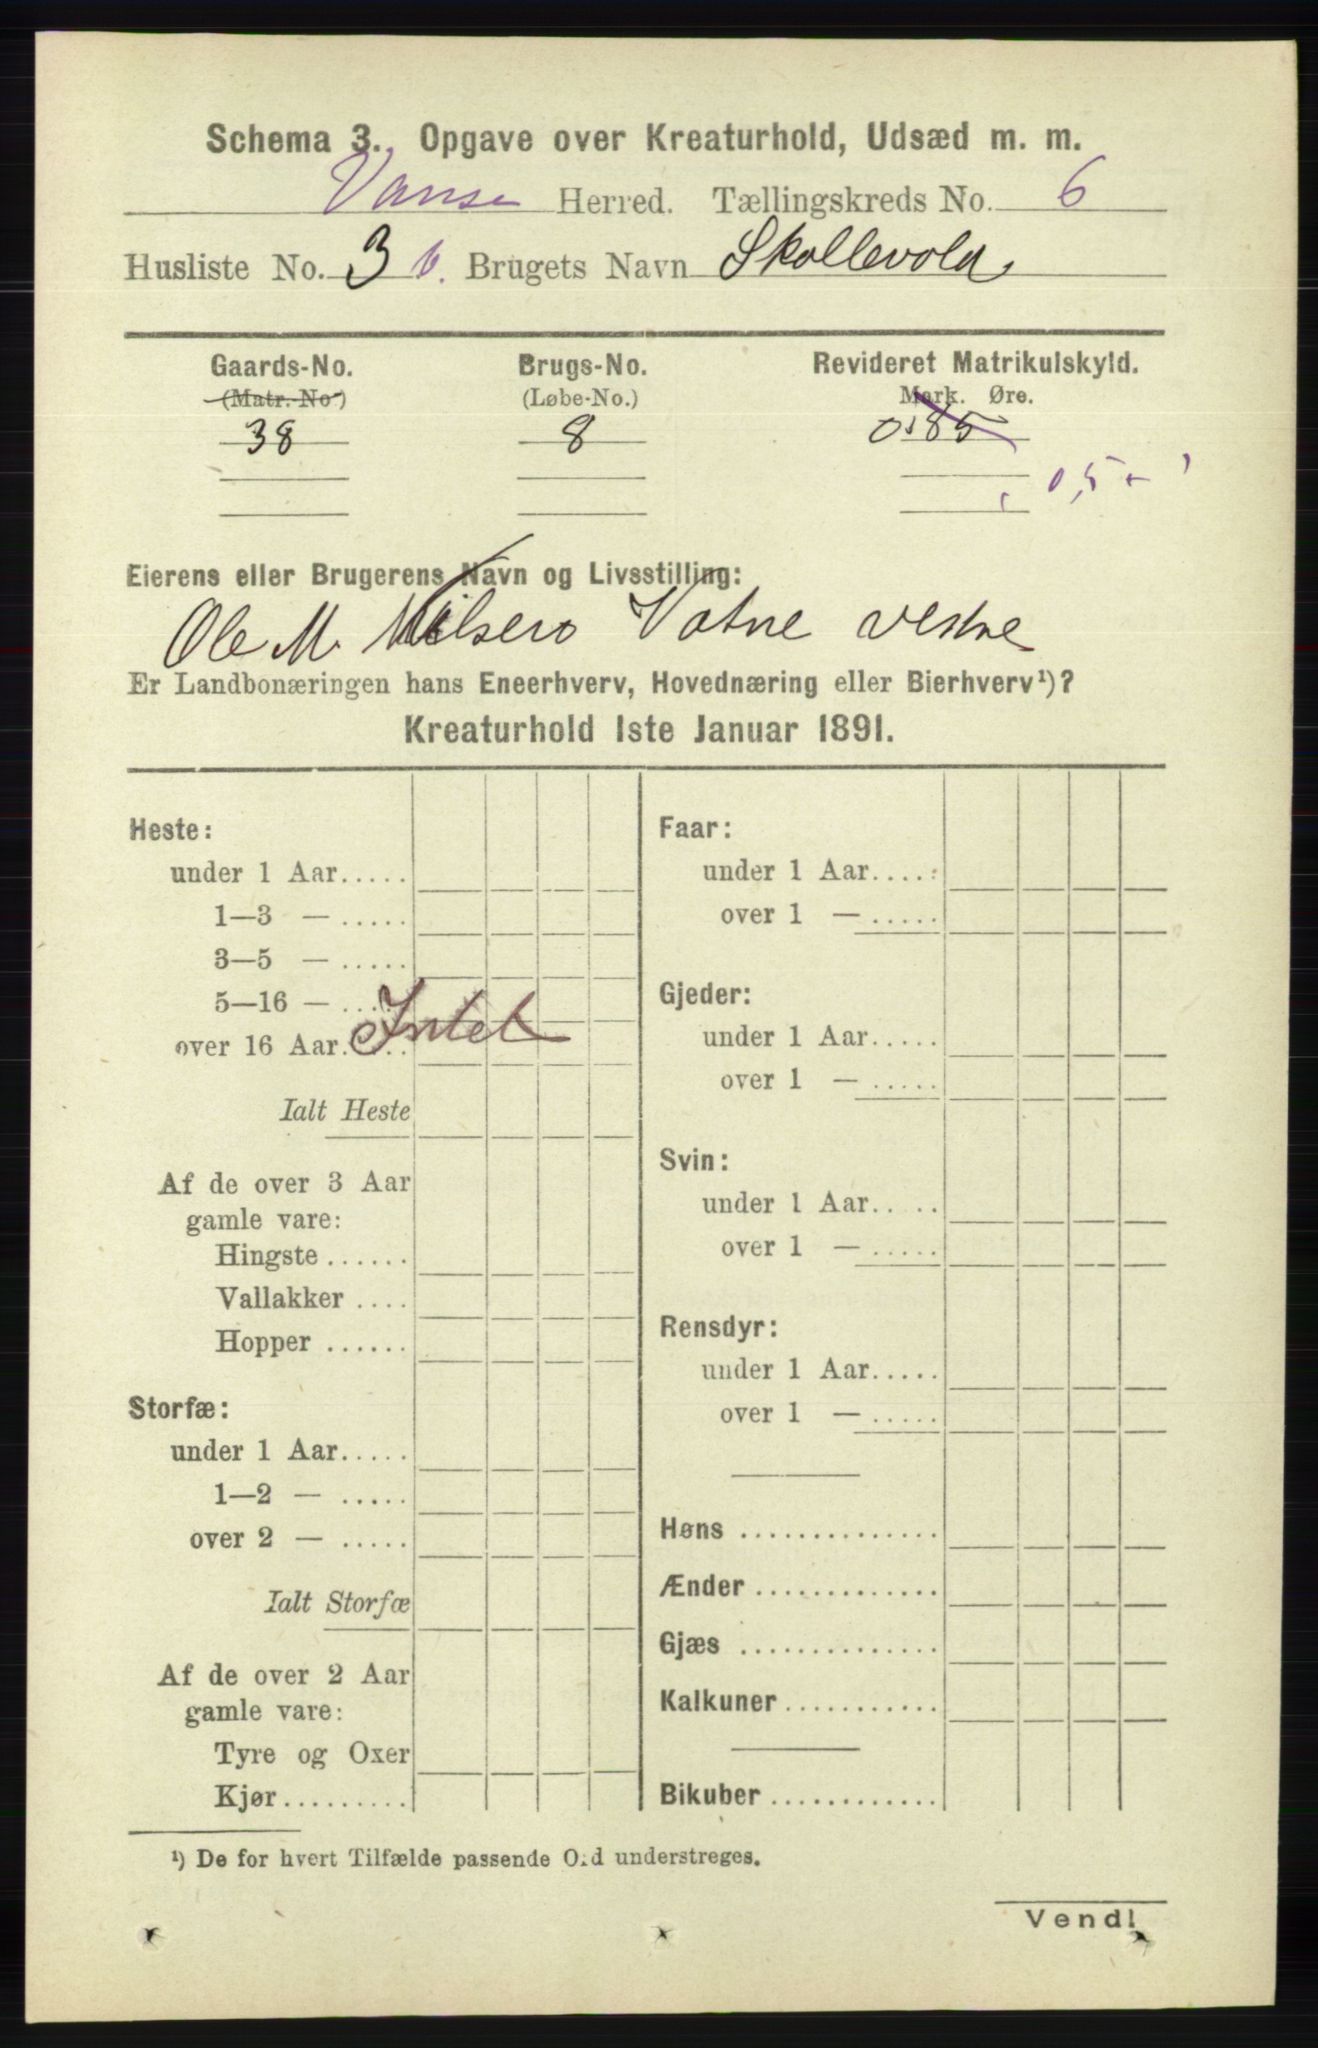 Schema 3. Opgave over Kreaturhold, Udsæd m. m.
Vanse Herred. Tællingskreds No. 6
Husliste No. 3 b. Brugets Navn Skollevold
Gaards-No. Brugs-No. Revideret Matrikulskyld.
(Matr.-No) (Løbe-No.) Mark. Øre.
38 8 0,85
0,5
Eierens eller Brugerens Navn og Livsstilling:
Ole M. Nilsen Vatne vestre
Er Landbonæringen hans Eneerhverv, Hovednæring eller Bierhverv¹)?
Kreaturhold 1ste Januar 1891.
Heste:
under 1 Aar.....
1—3 — .....
3—5 — .....
5—16 — .....
over 16 Aar.....
Intet
Ialt Heste
Af de over 3 Aar
gamle vare:
Hingste ......
Vallakker ....
Hopper ......
Storfæ:
under 1 Aar.....
1—2 — .....
over 2 — .....
Ialt Storfæ
Af de over 2 Aar
gamle vare:
Tyre og Oxer
Kjør.........
Faar:
under 1 Aar.....
over 1 — .....
Gjeder:
under 1 Aar.....
over 1 — .....
Svin:
under 1 Aar.....
over 1 — .....
Rensdyr:
under 1 Aar.....
over 1 — .....
Høns ..............
Ænder .............
Gjæs ..............
Kalkuner...........
Bikuber ............
¹) De for hvert Tilfælde passende Ord understreges.
Vend!